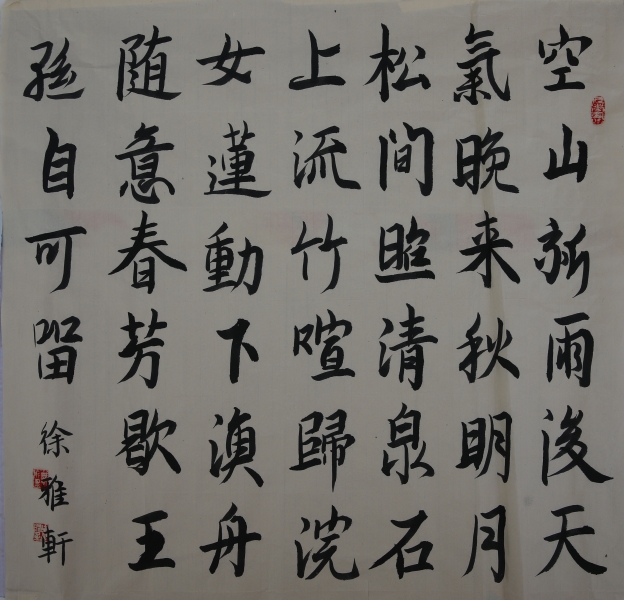 空山新雨後天
氣晚来秋明月
松間照清泉石
上流竹喧歸浣
女蓮動下漁舟
随意春芳歇王
孫自可留
徐雅軒